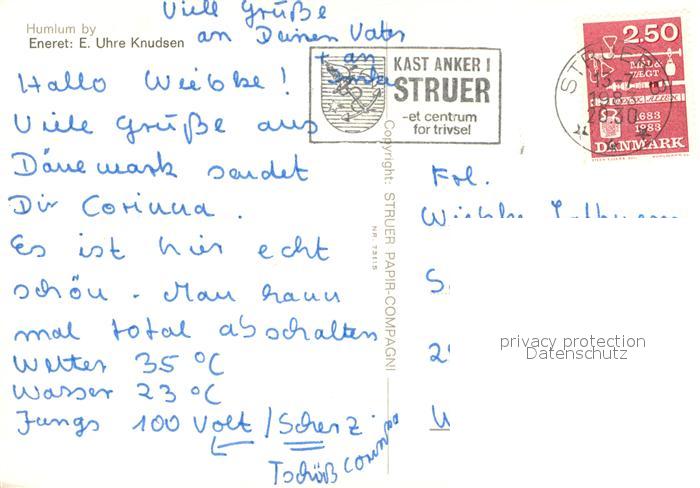 Viele Grüße
an Deinen Vater
+ an
Humlum by
Eneret: E. Uhre Knudsen
Hallo Wiebke!
Viele Grüße aus
Dänemark sendet
Dir Corinna.
Es ist hier echt
schön. Man kann
mal total abschalten
Wetter 35 °C
Wasser 23 °C
Jungs 100 Volt / Scherz
Tschüß Corinna
KAST ANKER I
STRUER
-et centrum
for trivsel
STRUER
2.50
MÅL &
VÆGT
1683
1983
DANMARK
Copyright: STRUER PAPIR-COMPAGNI
NR. 73115
Frl.
Wiebke
privacy protection
Datenschutz